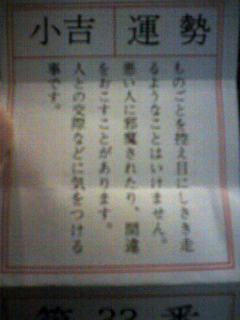 運勢
小吉
ものごとを控え目にしさき走
るようなことはいけません。
悪い人に邪魔されたり、間違
をおこすことがあります。
人との交際などに気をつける
事です。
第33番